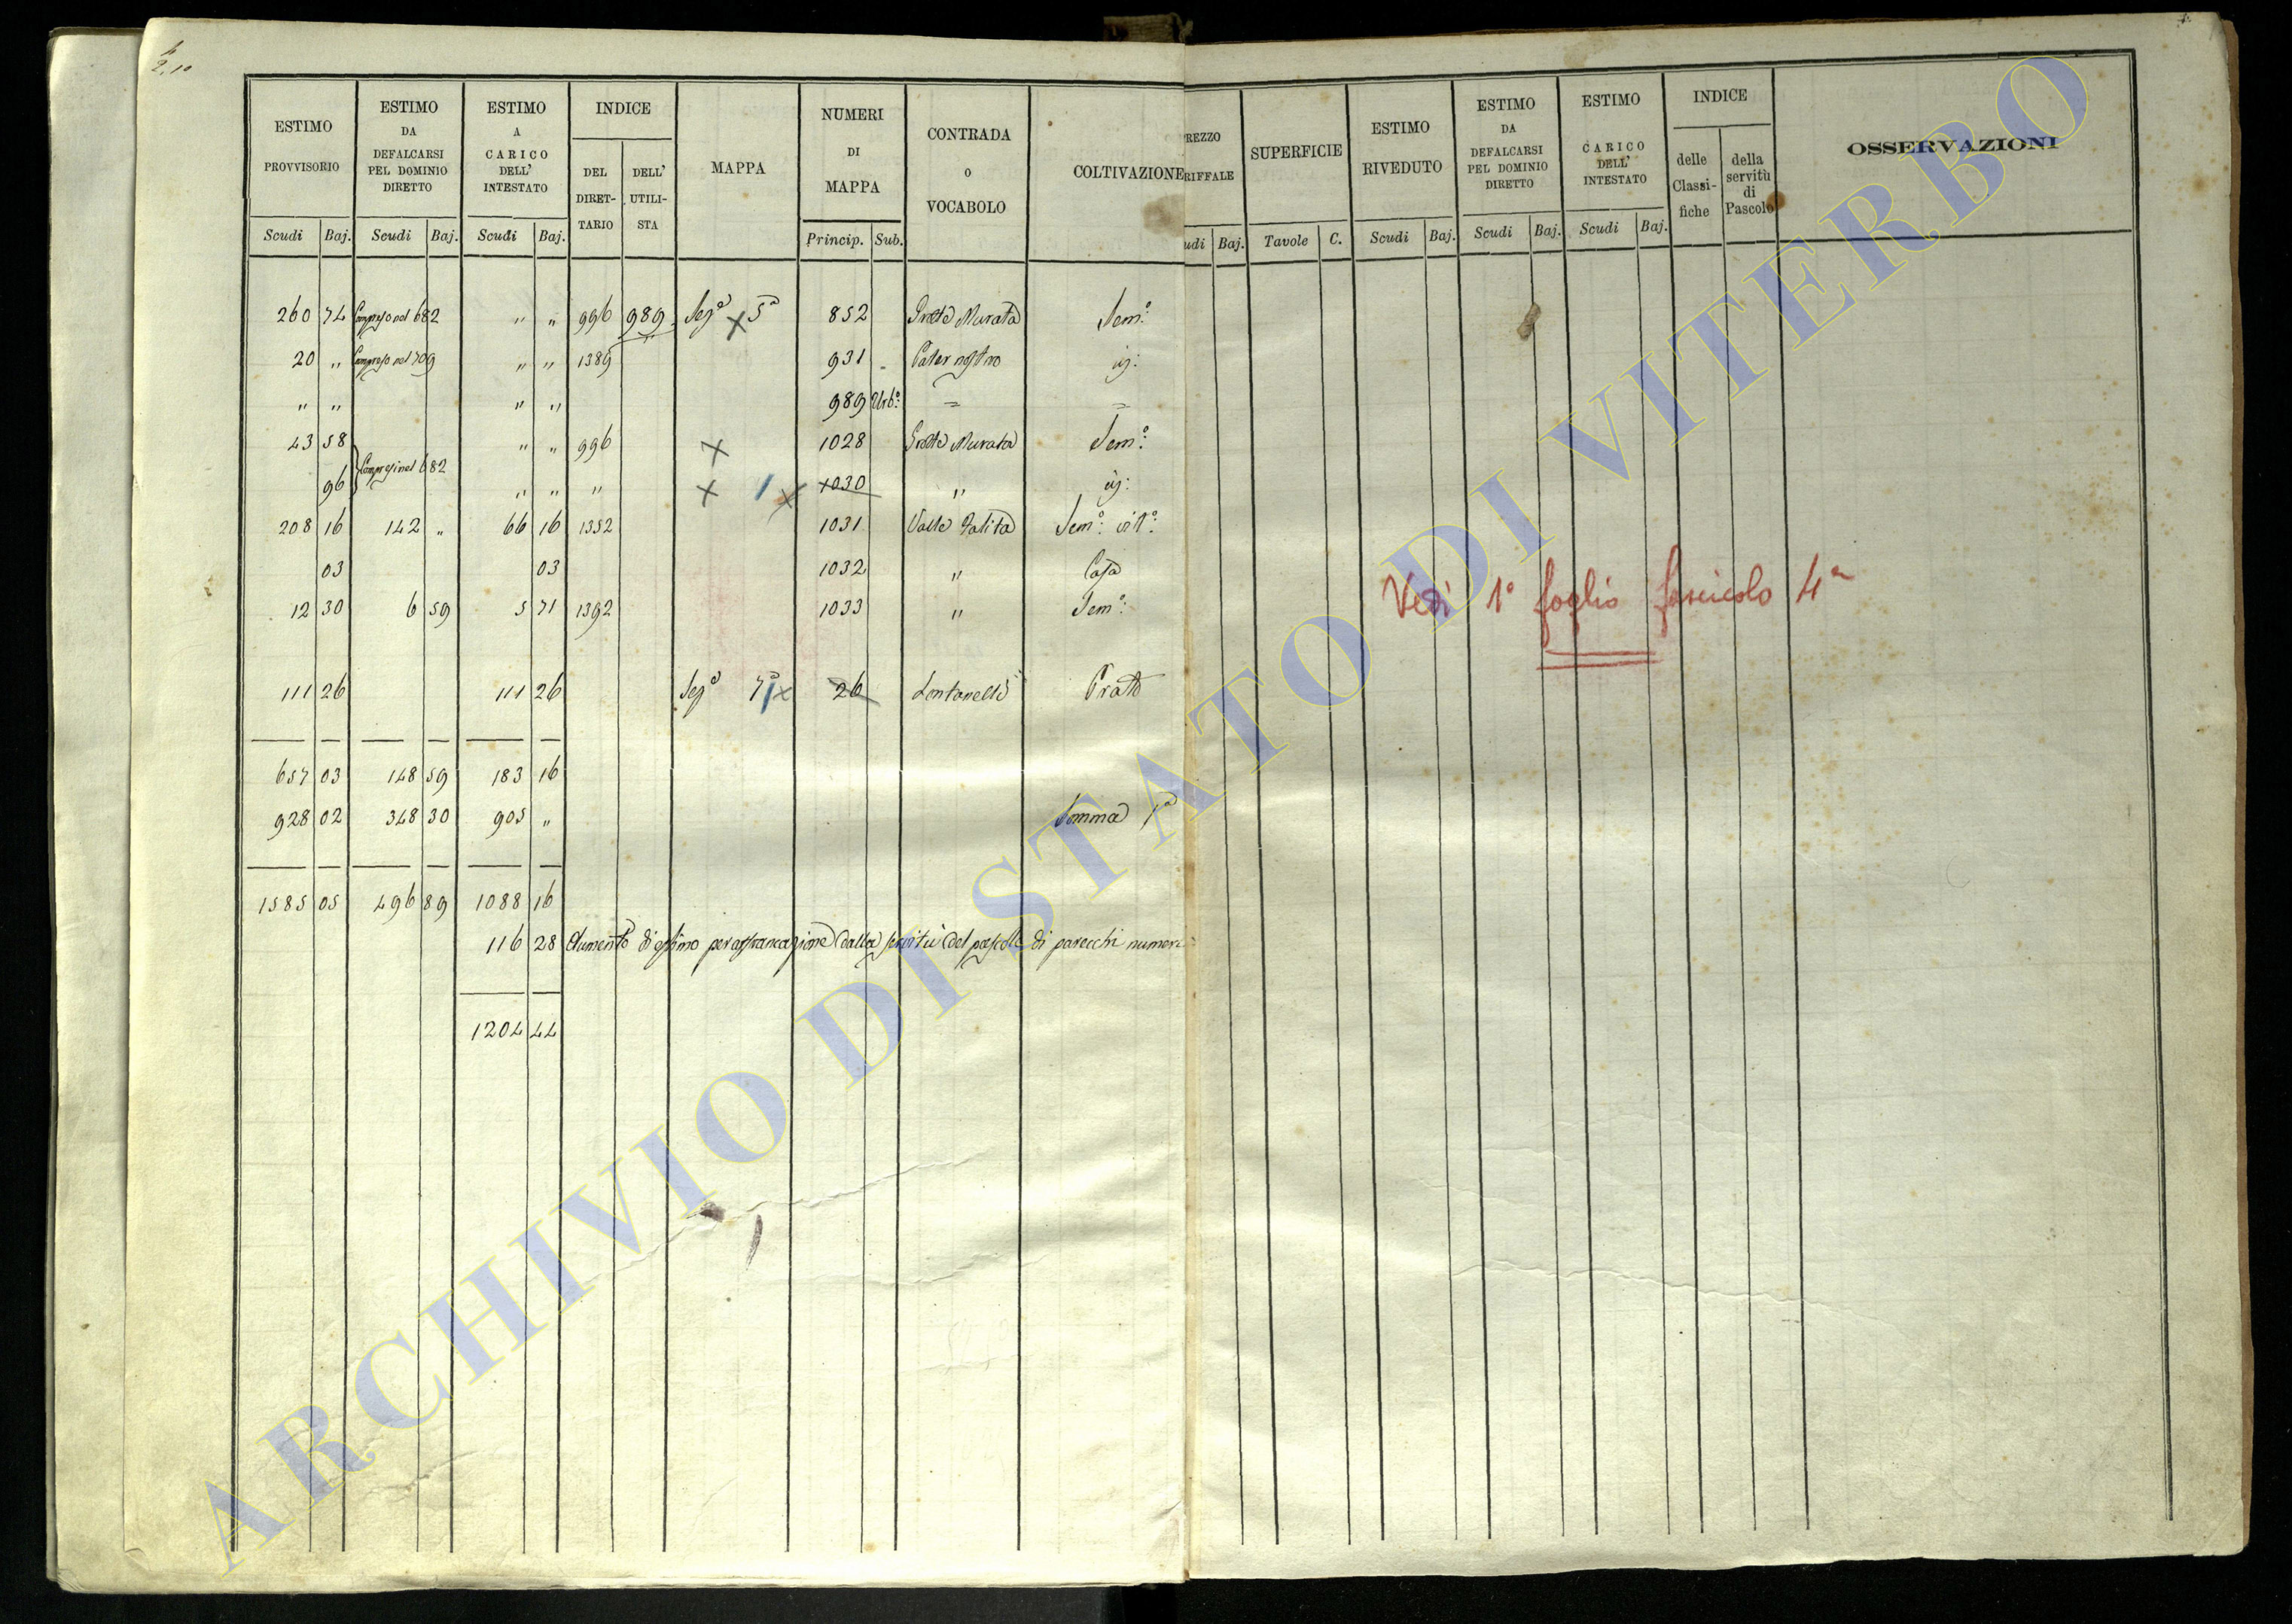 2.10
ESTIMO PROVVISORIO | ESTIMO DA DEFALCARSI PEL DOMINIO DIRETTO | ESTIMO A CARICO DELL' INTESTATO | INDICE DEL DIRET-TARIO | DELL' UTILI-STA | MAPPA | NUMERI DI MAPPA | CONTRADA O VOCABOLO | COLTIVAZIONE
Scudi | Baj. | Scudi | Baj. | Scudi | Baj. | Princip. | Sub.
260 74 Compreso nel 682 " " 996 989 Sez.a 5a 852 Grotte Murata Sem.o
20 " Compreso nel 709 " " 1389 931 Pater nostro id:
" " " " 989 Urb.o = =
43 58 " " 996 1028 Grotte Murata Sem.o
Compresi nel 682
96 " " " 1030 " id:
208 16 142 " 66 16 1352 1031 Valle Sem.o vit.o
03 03 1032 " Casa
12 30 6 59 5 71 1392 1033 " Sem.o
111 26 111 26 Sez.a 7a 26 Fontanelle Prato
657 03 148 59 183 16
928 02 348 30 905 " Somma 1a
1585 05 496 89 1088 16
116 28 Aumento di estimo per affrancazione dalla servitù del pascolo di parecchi numeri
1204 44
REZZO RIFFALE | SUPERFICIE | ESTIMO RIVEDUTO | ESTIMO DA DEFALCARSI PEL DOMINIO DIRETTO | ESTIMO CARICO DELL' INTESTATO | INDICE delle Classi-fiche | della servitù di Pascolo | OSSERVAZIONI
udi | Baj. | Tavole | C. | Scudi | Baj. | Scudi | Baj. | Scudi | Baj.
Vedi 1° foglio fascicolo 4°
ARCHIVIO DI STATO DI VITERBO